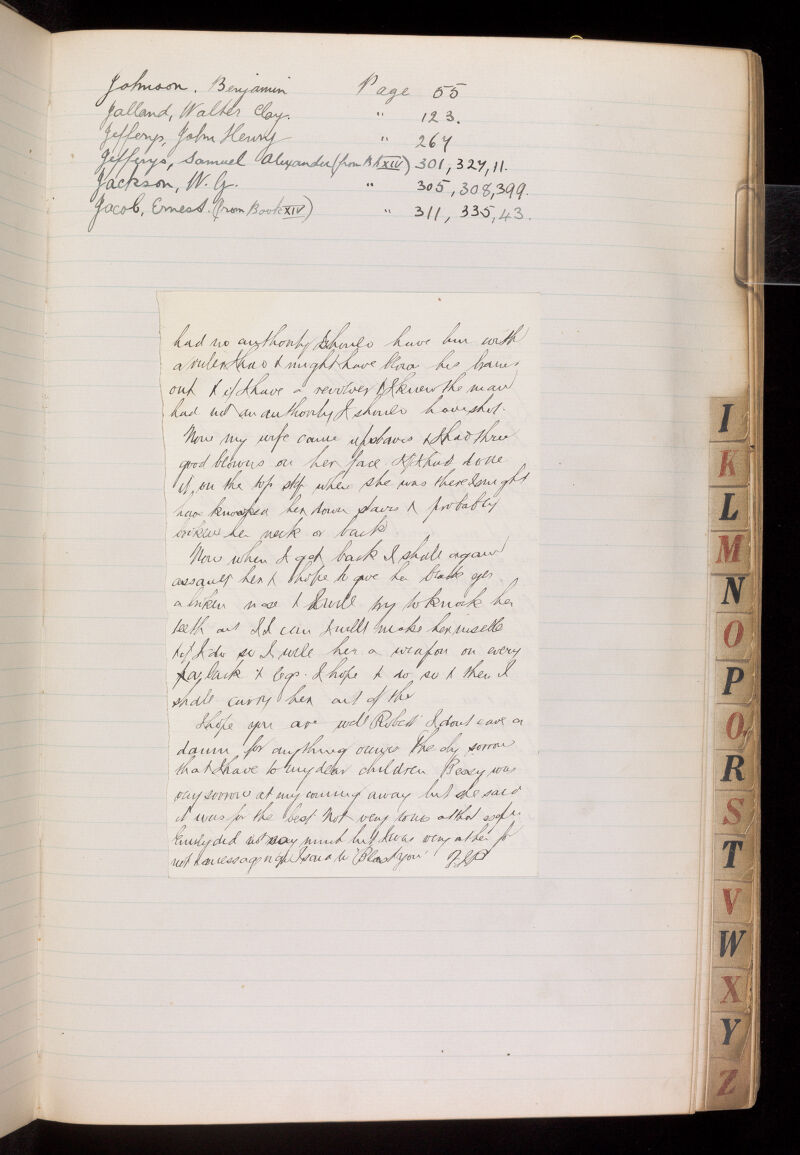 Johnson, Benjamin Page 55
Jalland, Walter Clay. " 123.
Jefferys, John Henry " 267
Jefferys, Samuel Alexander (from Bk XIV) 301, 327, 11.
Jackson, W. G. " 305, 308, 399.
Jacob, Ernest. (from Book XIV) " 311, 335, 43.
had no authority I should have with
a & might have blown his brains
out & if I have a revolver & I knew the man
had not an authority I should have shot.
Now my wife came upstairs & I had three
good blows on her face & if I had done
it on the top step when she was there I might
have knocked her down stairs & probably
broken her neck or back.
Now when I get back I shall again
assault her & hope to give her black eyes
a broken nose & I will try to knock her
teeth out If I can I will make her
& if I do so I will her a weapon on every
back & legs. I hope to do so & then I
shall carry her out of the
I hope you are well Robert I dont care a
damn for anything The only sorrow
that I have to my dear children Bessy was
very sorrow at my coming away but she said
it was for the best Not very at that
Emily did not say much but I was very at her for
not message I said to "Blast you"
I
K
L
M
N
O
P
Q
R
S
T
V
W
X
Y
Z